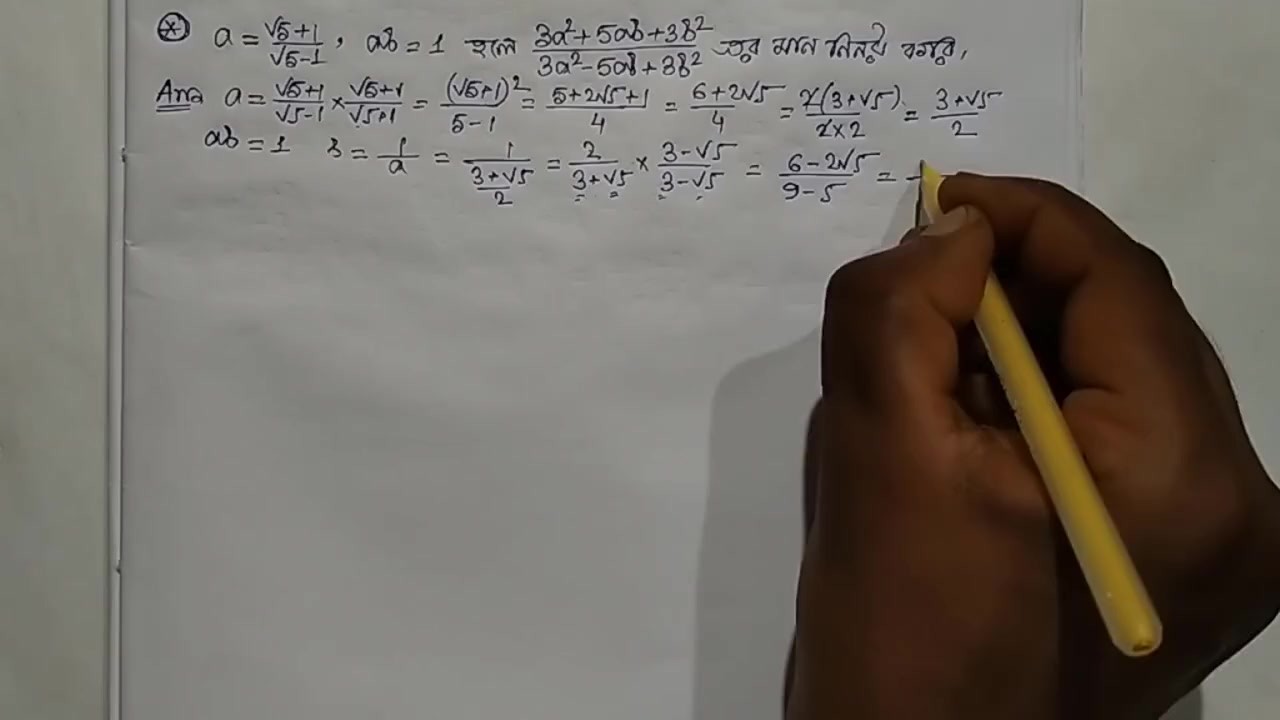 ⊛ a = (√5+1)/(√5-1), ab = 1 হলে (3a²+5ab+3b²)/(3a²-5ab+3b²) এর মান নির্নয় করো,
Ans a = (√5+1)/(√5-1) × (√5+1)/(√5+1) = (√5+1)²/(5-1) = (5+2√5+1)/4 = (6+2√5)/4 = 2(3+√5)/(2×2) = (3+√5)/2
ab = 1 b = 1/a = 1/((3+√5)/2) = 2/(3+√5) × (3-√5)/(3-√5) = (6-2√5)/(9-5) =